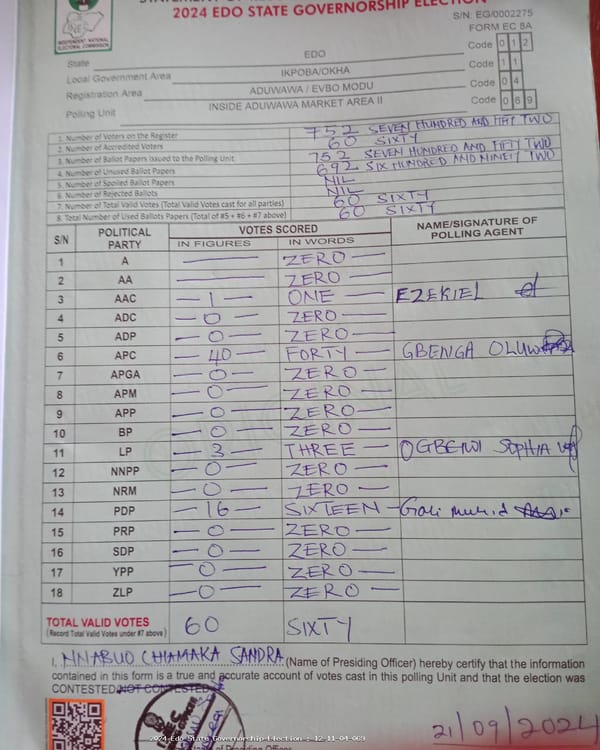 2024 EDO STATE GOVERNORSHIP ELECTION
S/N: EG/0002275
FORM EC 8A
INDEPENDENT NATIONAL ELECTORAL COMMISSION
State EDO Code 0 1 2
Local Government Area IKPOBA/OKHA Code 1 1
Registration Area ADUWAWA / EVBO MODU Code 0 4
Polling Unit INSIDE ADUWAWA MARKET AREA II Code 0 6 9
1. Number of Voters on the Register 752 SEVEN HUNDRED AND FIFTY TWO
2. Number of Accredited Voters 60 SIXTY
3. Number of Ballot Papers Issued to the Polling Unit 752 SEVEN HUNDRED AND FIFTY TWO
4. Number of Unused Ballot Papers 692 SIX HUNDRED AND NINETY TWO
5. Number of Spoiled Ballot Papers NIL
6. Number of Rejected Ballots NIL
7. Number of Total Valid Votes (Total Valid Votes cast for all parties) 60 SIXTY
8. Total Number of Used Ballots Papers (Total of #5 + #6 + #7 above) 60 SIXTY
S/N POLITICAL PARTY VOTES SCORED NAME/SIGNATURE OF POLLING AGENT
IN FIGURES IN WORDS
1 A ZERO
2 AA ZERO
3 AAC 1 ONE EZEKIEL
4 ADC 0 ZERO
5 ADP 0 ZERO
6 APC 40 FORTY GBENGA
7 APGA 0 ZERO
8 APM 0 ZERO
9 APP 0 ZERO
10 BP 0 ZERO
11 LP 3 THREE SOPHIA
12 NNPP 0 ZERO
13 NRM 0 ZERO
14 PDP 16 SIXTEEN
15 PRP 0 ZERO
16 SDP 0 ZERO
17 YPP 0 ZERO
18 ZLP 0 ZERO
TOTAL VALID VOTES 60 SIXTY
(Record Total Valid Votes under #7 above)
I, NNABUO CHIAMAKA SANDRA (Name of Presiding Officer) hereby certify that the information
contained in this form is a true and accurate account of votes cast in this polling Unit and that the election was
CONTESTED/NOT CONTESTED
21/09/2024
2024 Edo State Governorship Election : 12-11-04-069